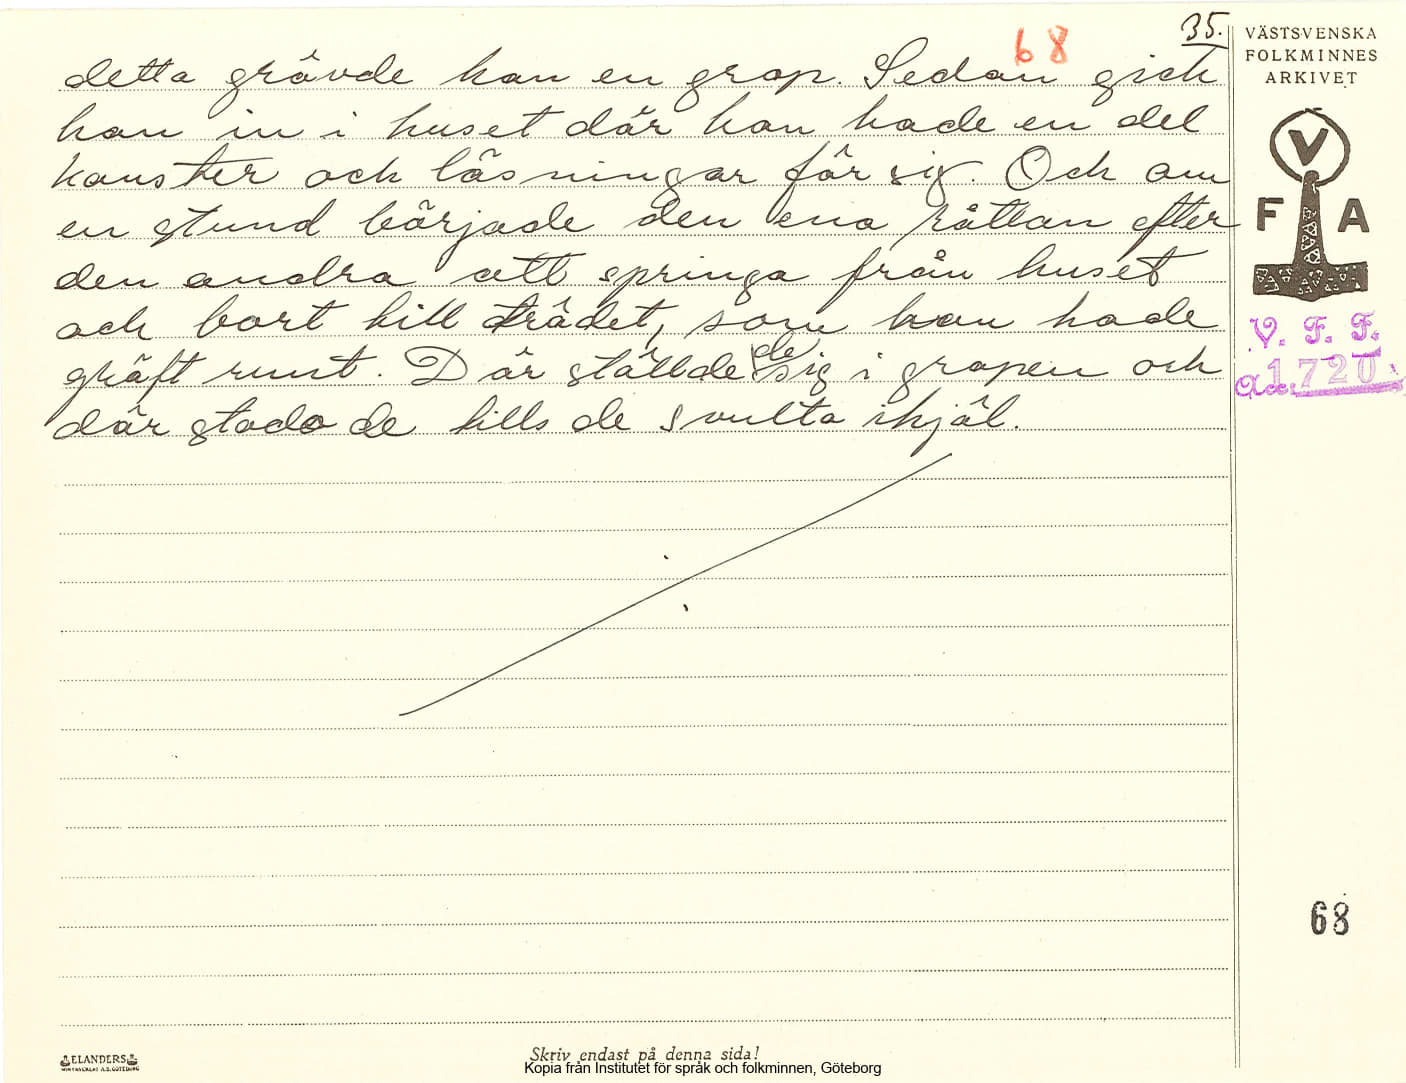 35.
68
VÄSTSVENSKA
FOLKMINNES
ARKIVET
detta grävde han en grop. Sedan gick
han in i huset där han hade en del
konster och läsningar för sig. Och om
en stund började den ena råttan efter
den andra att springa från huset
och bort till trädet, som han hade
gräft runt. Där ställde de sig i gropen och
där stodo de tills de svulta ihjäl.
V
F A
V. F. F.
Acc. 1720.
68
ELANDERS
Skriv endast på denna sida!
Kopia från Institutet för språk och folkminnen, Göteborg